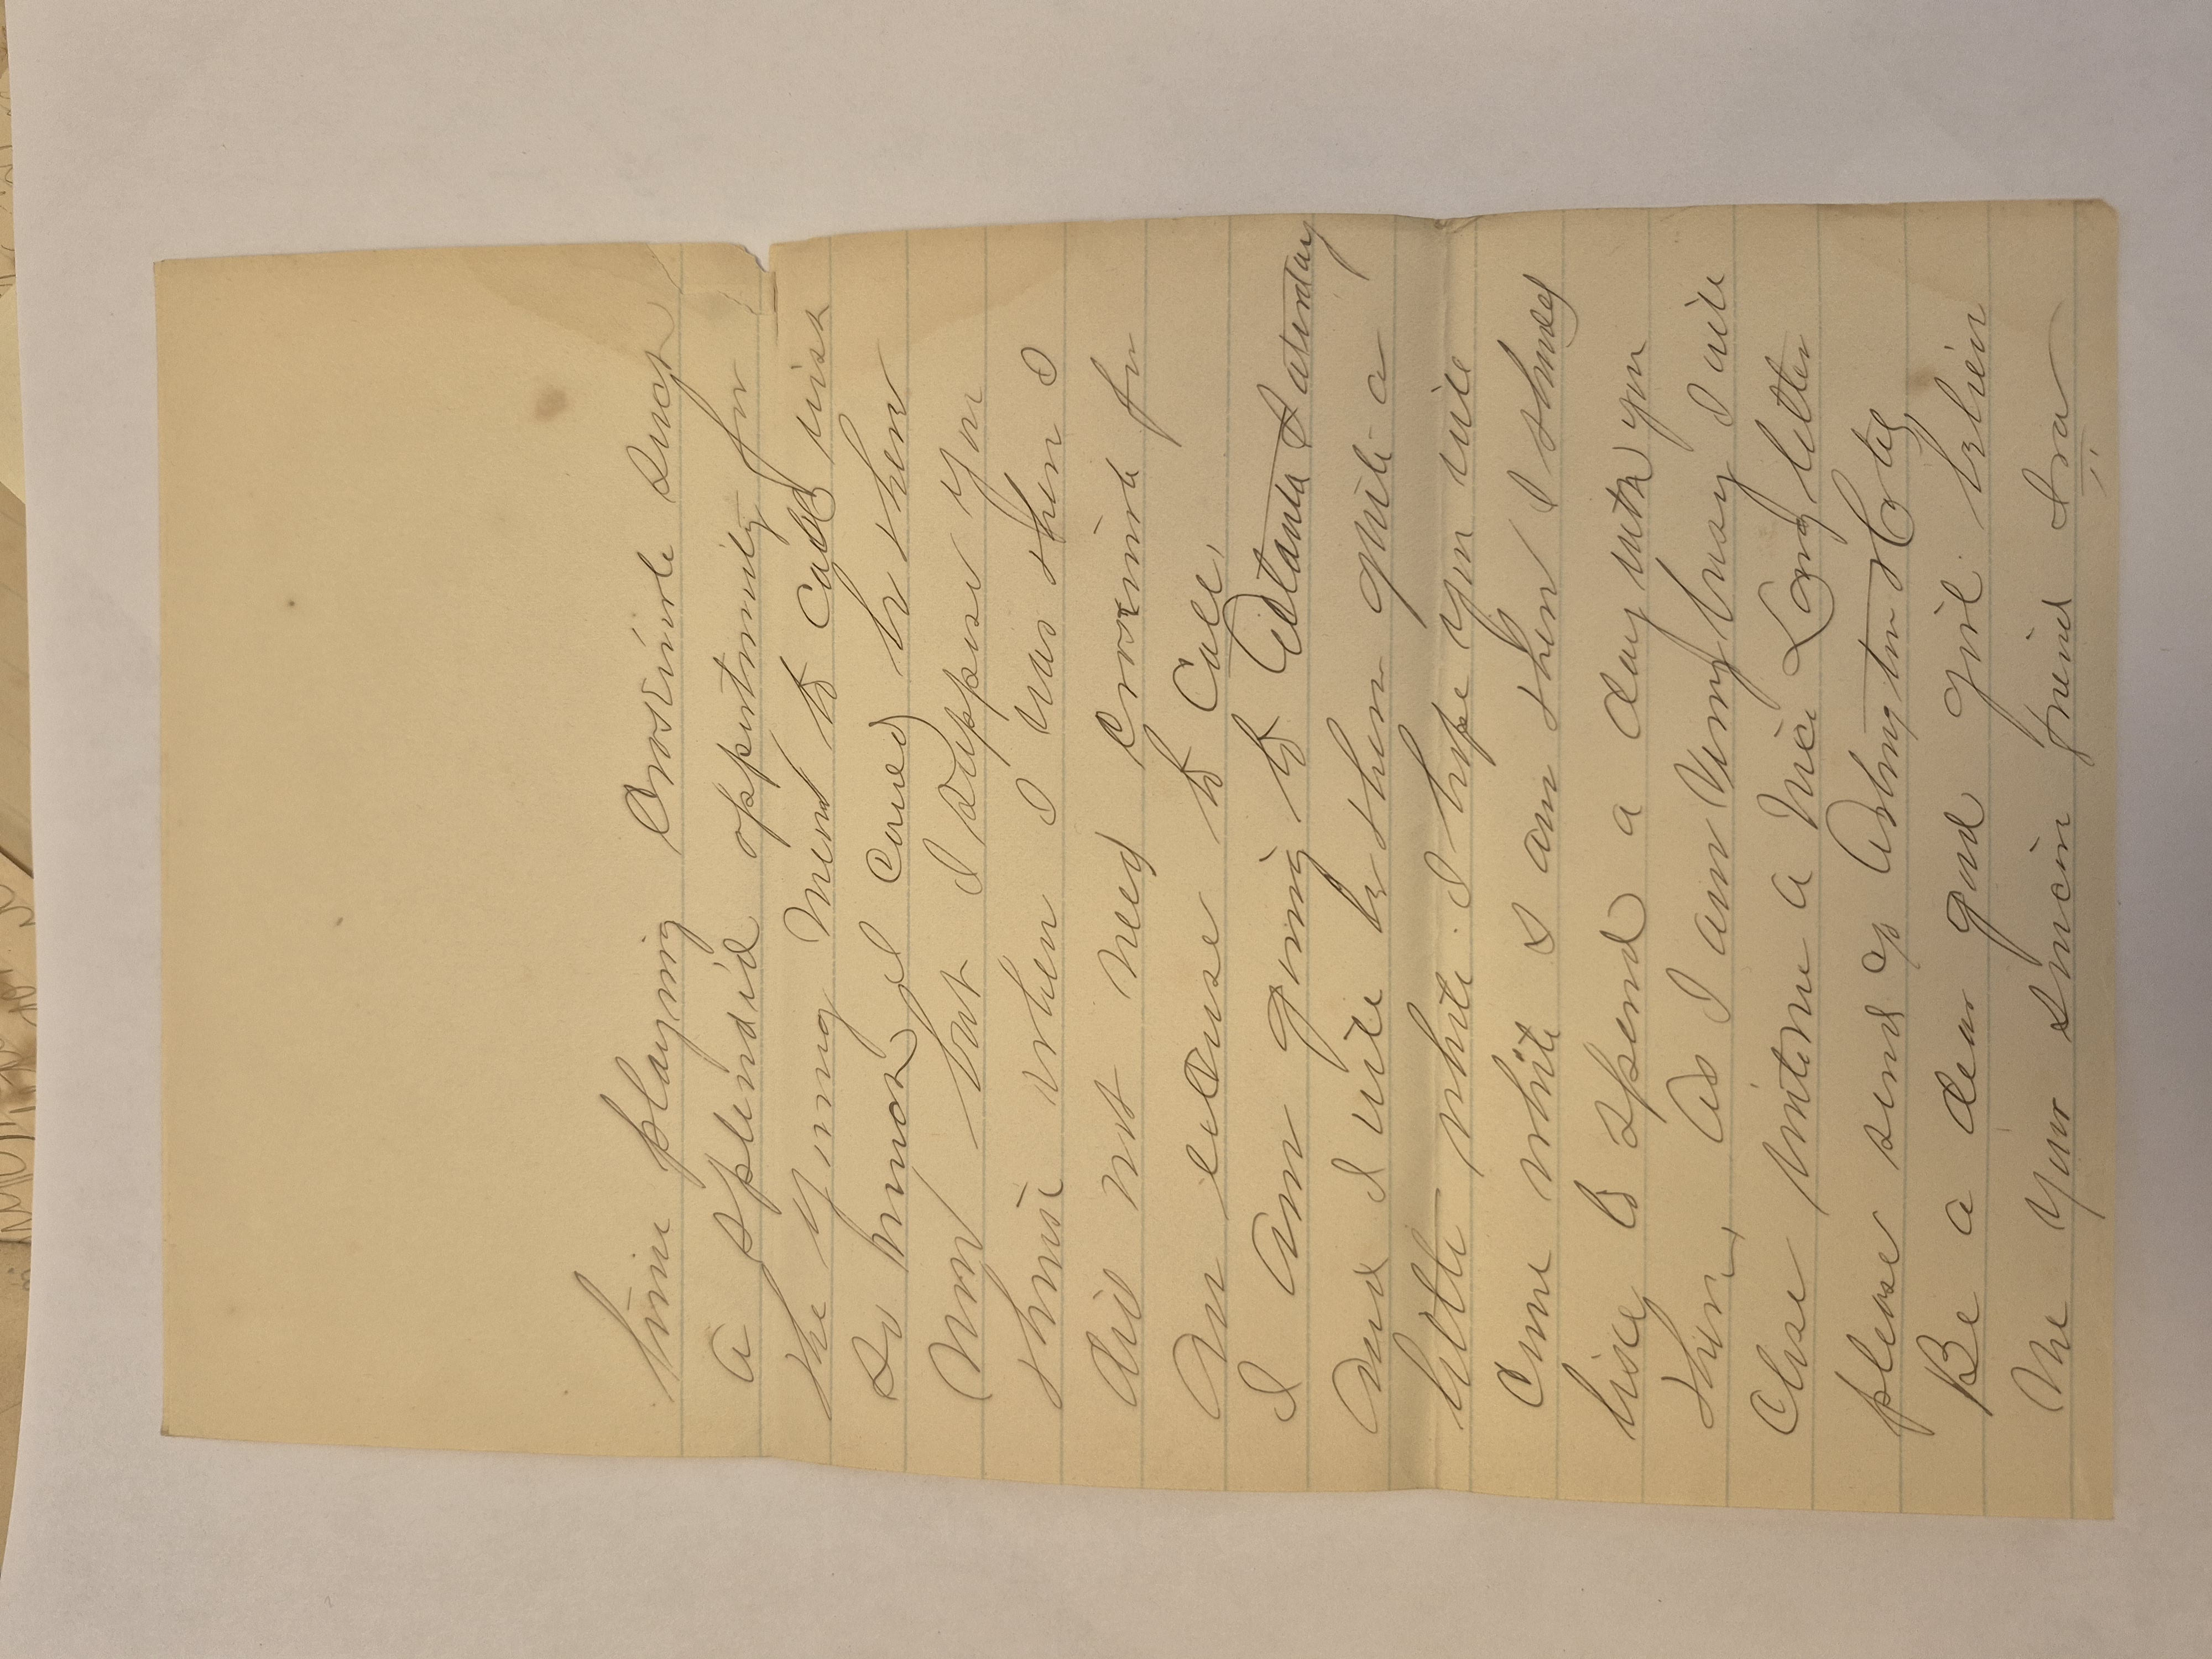 time playing Croxinole such
a splendid oppertunity for
the young men to call wish
so much I cared to be there
Now but I suppose you
think when I was there I
did not need Croxinole for
an excuse to call,
I am going to Atlanta Saturday
and I will be there quite a
little while. I hope you will
come while I am there I should
like to spend a day with you
there, As I am very busy I will
close write me a nice Long letter
please send ap Ashington
Be a dear good girl. believe
me your sincere friend Ira